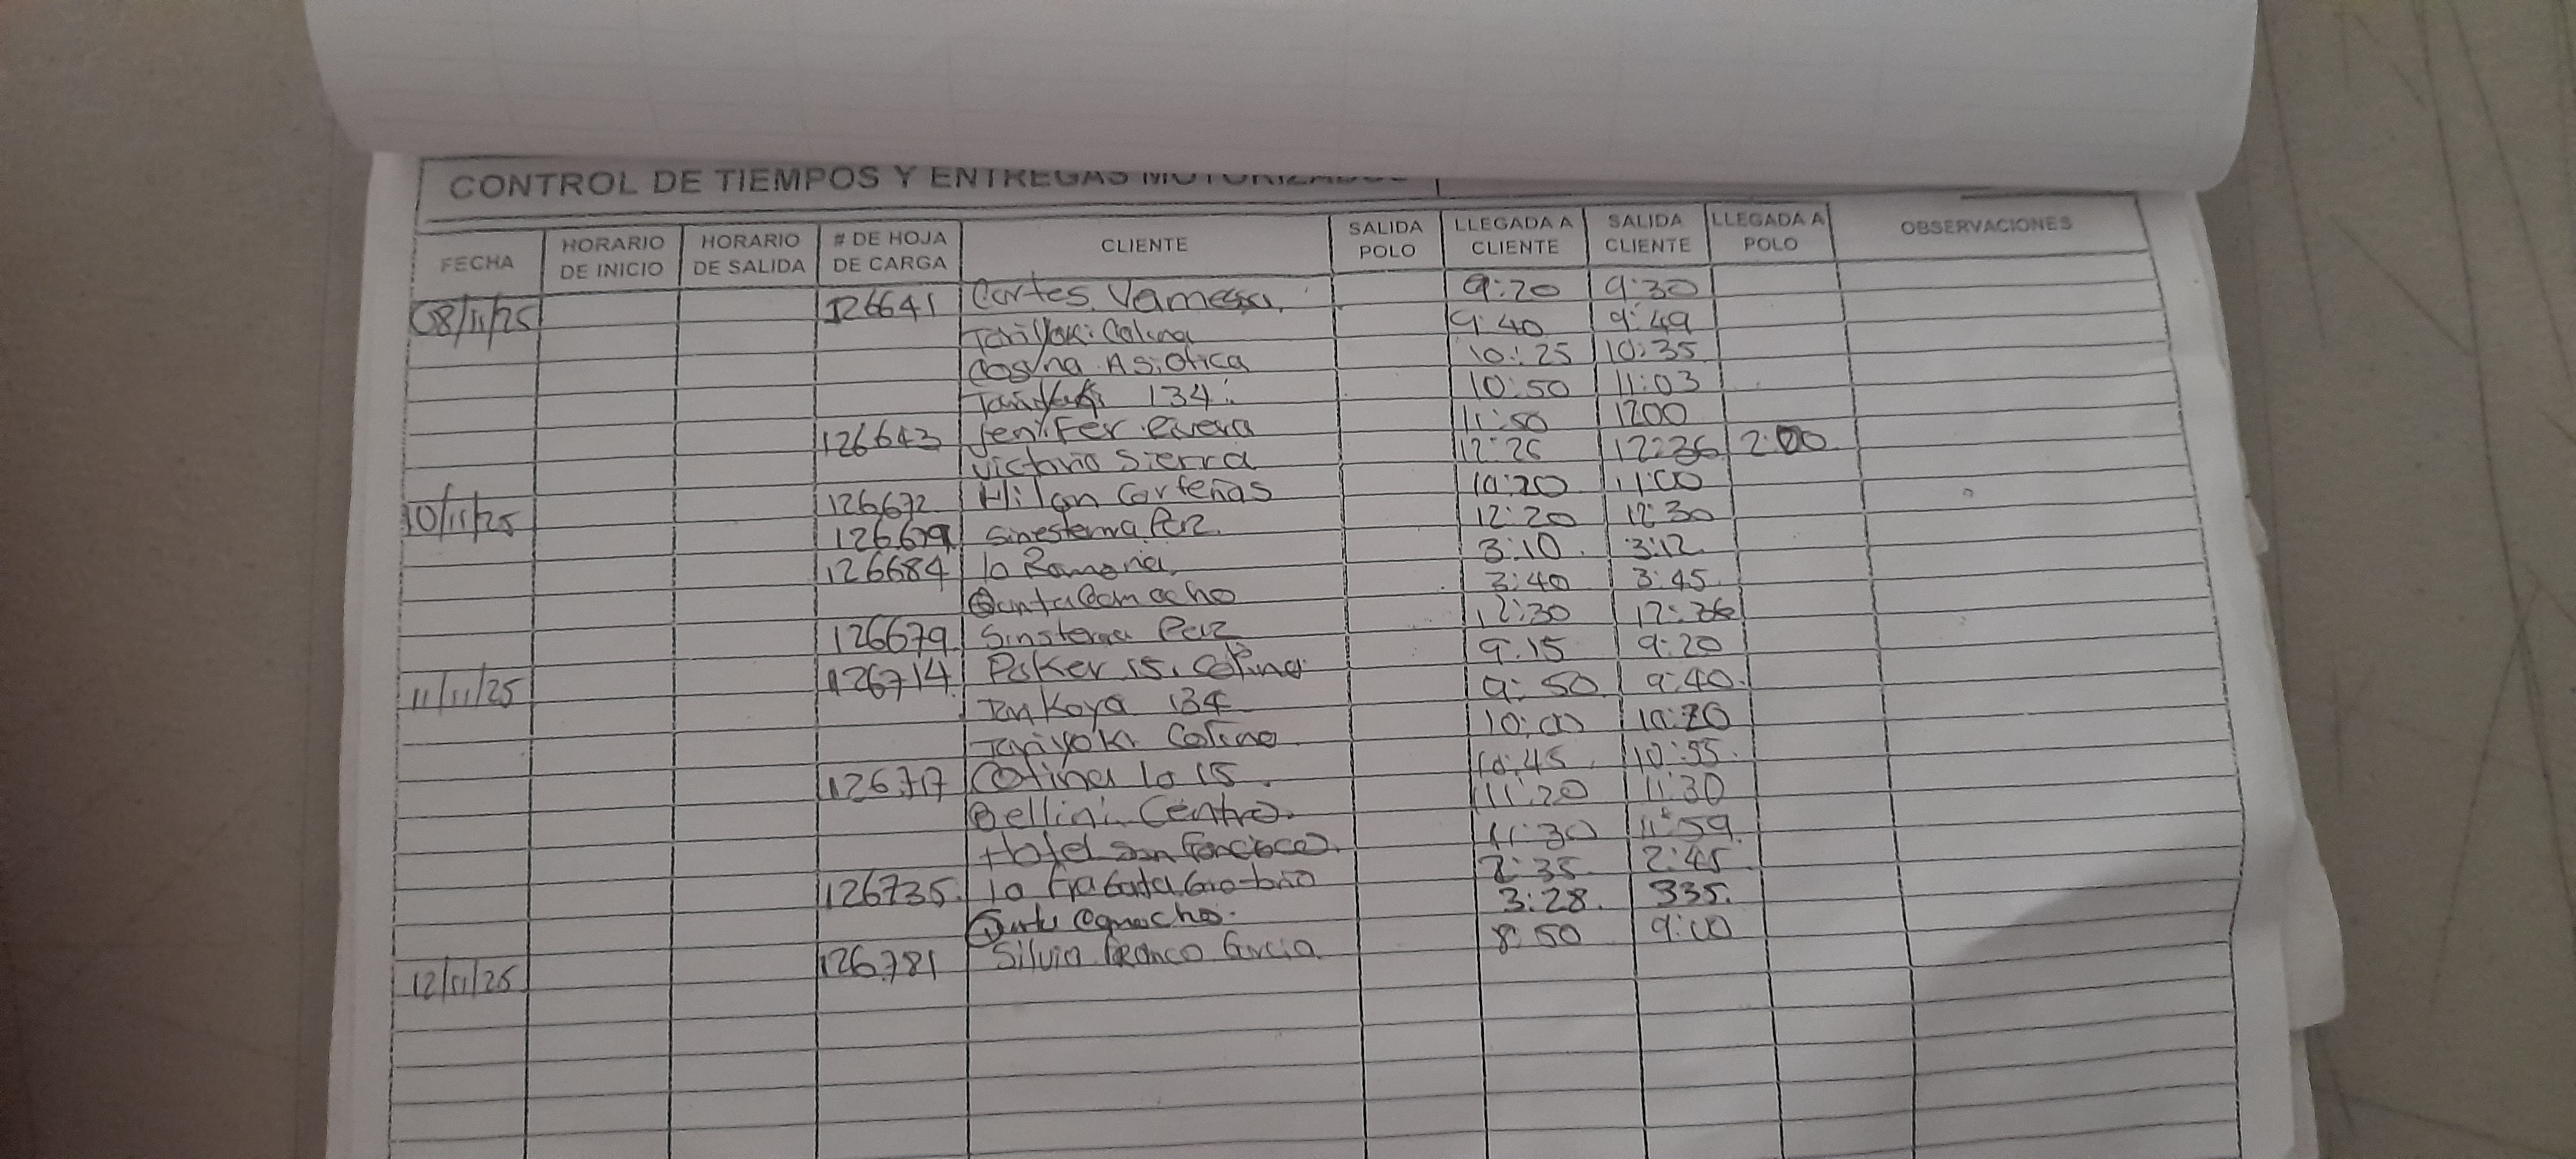 CONTROL DE TIEMPOS Y ENTREGAS MOTORIZADOS
FECHA HORARIO DE INICIO HORARIO DE SALIDA # DE HOJA DE CARGA CLIENTE SALIDA POLO LLEGADA A CLIENTE SALIDA CLIENTE LLEGADA A POLO OBSERVACIONES
08/11/25 126641 Cortes Vanessa 9:20 9:30
Tariyoki Colina 9:40 9:49
Cosina Asiatica 10:25 10:35
134 10:50 11:03
126643 Jenifer Rivera 11:50 1200
Victoria Sierra 12:26 12:36 2:00
10/11/25 126672 Hilan Carteñas 10:20 11:00
126679 Sinesterra Paz 12:20 12:30
126684 la Ramona 3:10 3:12
Camacho 3:40 3:45
126679 Sinsterra Paz 12:30 12:36
11/11/25 126714 Poker 15. Colina 9:15 9:20
134 9:50 9:40
Tariyoki Colina 10:00 10:20
126717 Colina la 15 10:45 10:55
Bellini Centro 11:20 11:30
Hotel San 11:30 11:59
126735 la Fragata 2:35 2:45
Camacho 3:28 335
12/11/25 126781 Silvia Franco Garcia 8:50 9:00